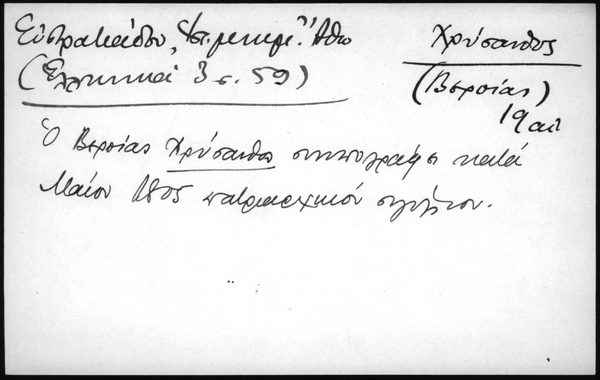 Εὐστρατιάδου, Ἱστ. μνημ. Ἄθω
(Ἑλληνικά 3 σ. 59)
Χρύσανθος
(Βεροίας)
19 αἰ
Ὁ Βεροίας Χρύσανθος συνυπογράφει κατά
Μαΐον πατριαρχικόν σιγίλλιον.